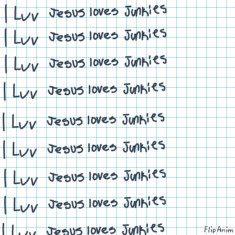 I Luv Jesus loves Junkies
I Luv Jesus loves Junkies
I Luv Jesus loves Junkies
I Luv Jesus loves Junkies
I Luv Jesus loves Junkies
I Luv Jesus loves Junkies
I Luv Jesus loves Junkies
I Luv Jesus loves Junkies
I Luv Jesus loves Junkies
FlipAnim